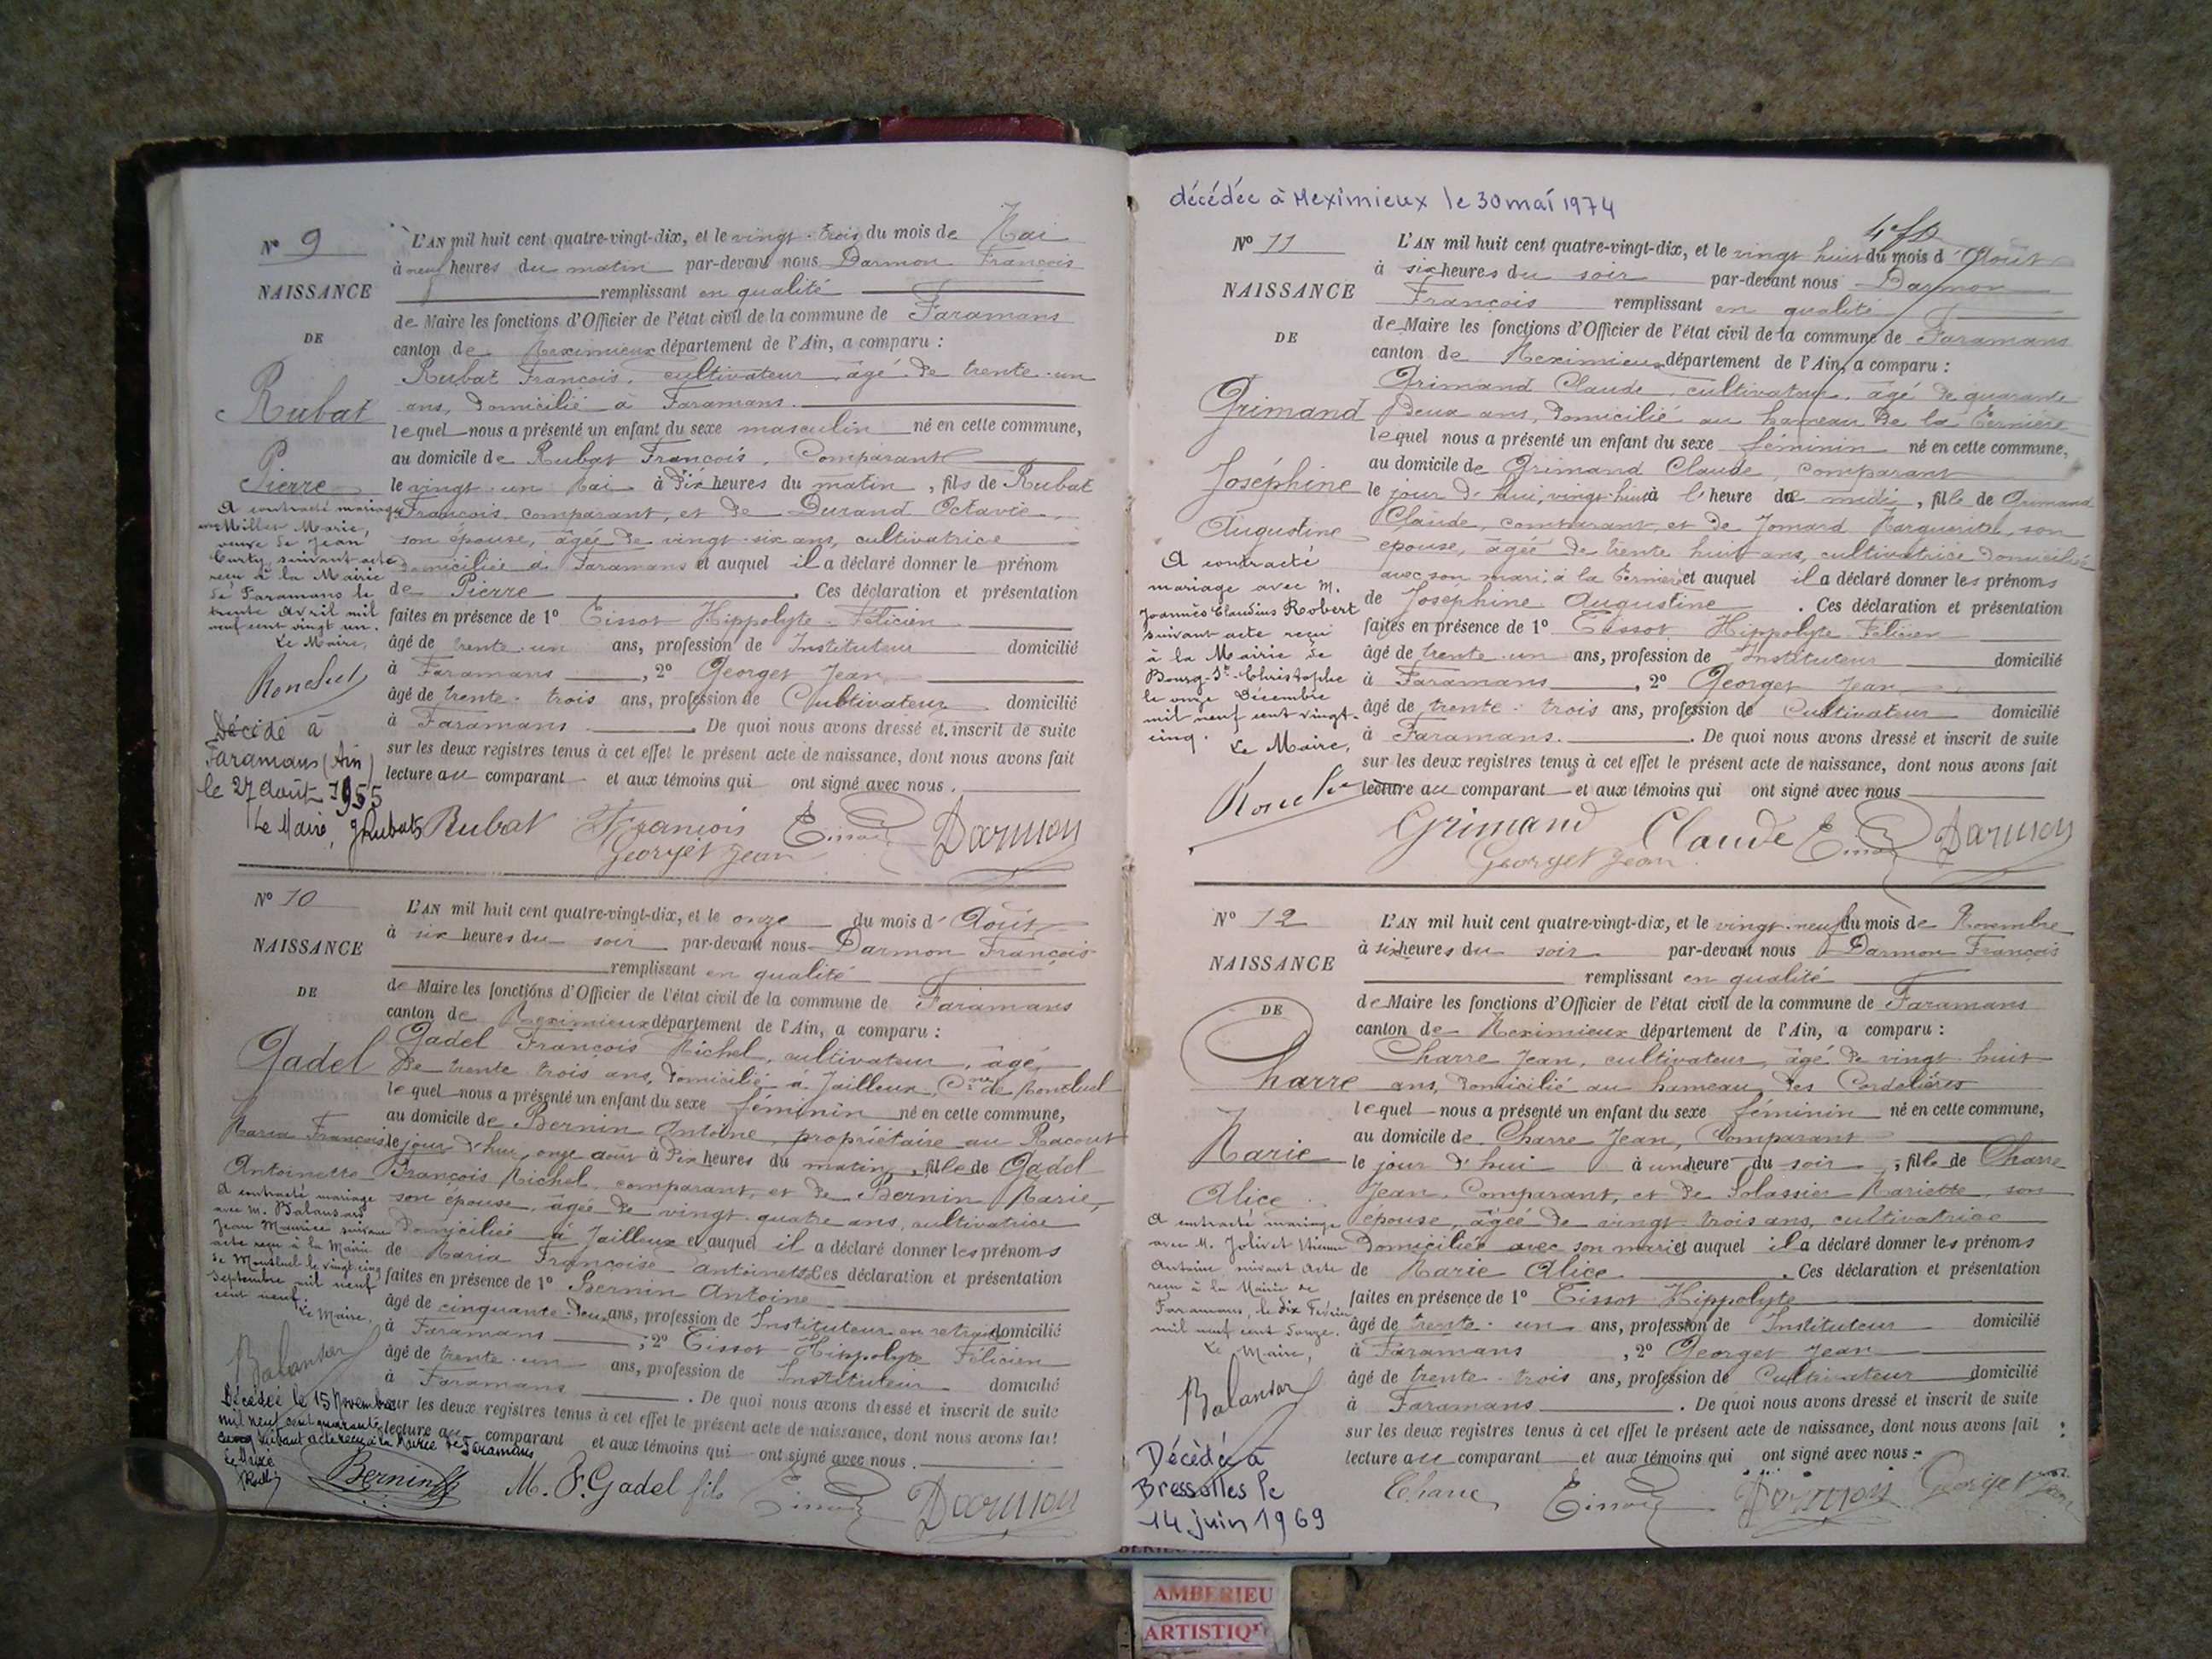 N° 9
NAISSANCE
DE
Rubat
Pierre
A contracté mariage
avec Millet Marie,
veuve de Jean
Curty, suivant acte
reçu à la Mairie
de Faramans le
trente Avril mil
neuf cent vingt un.
Le Maire,
Décédé à
Faramans (Ain)
le 27 août 1955
Le Maire, Rubat
L'AN mil huit cent quatre-vingt-dix, et le vingt-trois du mois de Mai
à neuf heures du matin par-devant nous Darmon François
remplissant en qualité
de Maire les fonctions d'Officier de l'état civil de la commune de Faramans
canton de Meximieux département de l'Ain, a comparu :
Rubat François, cultivateur, âgé de trente-un
ans, domicilié à Faramans.
lequel nous a présenté un enfant du sexe masculin né en cette commune,
au domicile de Rubat François, Comparant
le vingt-un Mai à dix heures du matin, fils de Rubat
François, comparant, et de Durand Octavie,
son épouse, âgée de vingt-six ans, cultivatrice
domiciliée à Faramans et auquel il a déclaré donner le prénom
de Pierre . Ces déclaration et présentation
faites en présence de 1° Tissot Hippolyte-Félicien
âgé de trente-un ans, profession de Instituteur domicilié
à Faramans , 2° Georget Jean
âgé de trente-trois ans, profession de Cultivateur domicilié
à Faramans . De quoi nous avons dressé et inscrit de suite
sur les deux registres tenus à cet effet le présent acte de naissance, dont nous avons fait
lecture au comparant et aux témoins qui ont signé avec nous.
Rubat François Tissot Darmon
Georget Jean
N° 10
NAISSANCE
DE
Gadel
Maria Françoise
Antoinette
A contracté mariage
avec M. Balansard
Jean Maurice suivant
acte reçu à la Mairie
de Montluel le vingt cinq
septembre mil neuf
cent neuf.
Le Maire,
Balansard
Décédée le 15 Novembre
mil neuf cent quarante
cinq suivant acte reçu à la Mairie de Faramans
Le Maire
L'AN mil huit cent quatre-vingt-dix, et le onze du mois d'Août
à six heures du soir par-devant nous Darmon François
remplissant en qualité
de Maire les fonctions d'Officier de l'état civil de la commune de Faramans
canton de Meximieux département de l'Ain, a comparu :
Gadel François Michel, cultivateur, âgé
de trente-trois ans, domicilié à Jailleux, Cne de Montluel
lequel nous a présenté un enfant du sexe féminin né en cette commune,
au domicile de Bernin Antoine, propriétaire au Racout
le jour d'hui, onze août à dix heures du matin, fille de Gadel
François Michel, comparant, et de Bernin Marie,
son épouse, âgée de vingt-quatre ans, cultivatrice
domiciliée à Jailleux et auquel il a déclaré donner les prénoms
de Maria Françoise Antoinette Ces déclaration et présentation
faites en présence de 1° Bernin Antoine
âgé de cinquante-deux ans, profession de Instituteur en retraite domicilié
à Faramans ; 2° Tissot Hippolyte Félicien
âgé de trente-un ans, profession de Instituteur domicilié
à Faramans . De quoi nous avons dressé et inscrit de suite
sur les deux registres tenus à cet effet le présent acte de naissance, dont nous avons fait
lecture au comparant et aux témoins qui ont signé avec nous.
Bernin M. F. Gadel fils Tissot Darmon
décédée à Meximieux le 30 mai 1974
N° 11
NAISSANCE
DE
Grimand
Joséphine
Augustine
A contracté
mariage avec M.
Joannès Claudius Robert
suivant acte reçu
à la Mairie de
Bourg-St-Christophe
le onze Décembre
mil neuf cent vingt-
cinq.
Le Maire,
L'AN mil huit cent quatre-vingt-dix, et le vingt huit du mois d'Août
à six heures du soir par-devant nous Darmon
François remplissant en qualité
de Maire les fonctions d'Officier de l'état civil de la commune de Faramans
canton de Meximieux département de l'Ain, a comparu :
Grimand Claude, cultivateur, âgé de quarante
deux ans, domicilié au hameau de la
lequel nous a présenté un enfant du sexe féminin né en cette commune,
au domicile de Grimand Claude, comparant
le jour d'hui, vingt-huit à l'heure de midi, fille de Grimand
Claude, comparant, et de Jomard Marguerite, son
épouse, âgée de trente huit ans, cultivatrice domiciliée
avec son mari, à la et auquel il a déclaré donner les prénoms
de Joséphine Augustine . Ces déclaration et présentation
faites en présence de 1° Tissot Hippolyte Félicien
âgé de trente-un ans, profession de Instituteur domicilié
à Faramans , 2° Georget Jean
âgé de trente-trois ans, profession de Cultivateur domicilié
à Faramans. . De quoi nous avons dressé et inscrit de suite
sur les deux registres tenus à cet effet le présent acte de naissance, dont nous avons fait
lecture au comparant et aux témoins qui ont signé avec nous
Grimand Claude Tissot Darmon
Georget Jean
N° 12
NAISSANCE
DE
Charre
Marie
Alice
A contracté mariage
avec M. Jolivet Etienne
Antoine suivant acte
reçu à la Mairie de
Faramans, le dix Février
mil neuf cent douze.
Le Maire,
Balansard
Décédée à
Bressolles le
14 juin 1969
L'AN mil huit cent quatre-vingt-dix, et le vingt-neuf du mois de Novembre
à six heures du soir par-devant nous Darmon François
remplissant en qualité
de Maire les fonctions d'Officier de l'état civil de la commune de Faramans
canton de Meximieux département de l'Ain, a comparu :
Charre Jean, cultivateur, âgé de vingt-huit
ans, domicilié au hameau des Cordelières
lequel nous a présenté un enfant du sexe féminin né en cette commune,
au domicile de Charre Jean, Comparant
le jour d'hui à une heure du soir, fille de Charre
Jean, Comparant, et de Solassier Mariette, son
épouse, âgée de vingt-trois ans, cultivatrice
domiciliée avec son mari et auquel il a déclaré donner les prénoms
de Marie Alice . Ces déclaration et présentation
faites en présence de 1° Tissot Hippolyte
âgé de trente-un ans, profession de Instituteur domicilié
à Faramans , 2° Georget Jean
âgé de trente-trois ans, profession de Cultivateur domicilié
à Faramans . De quoi nous avons dressé et inscrit de suite
sur les deux registres tenus à cet effet le présent acte de naissance, dont nous avons fait
lecture au comparant et aux témoins qui ont signé avec nous.
Charre Tissot Darmon Georget Jean
AMBERIEU
ARTISTIQ